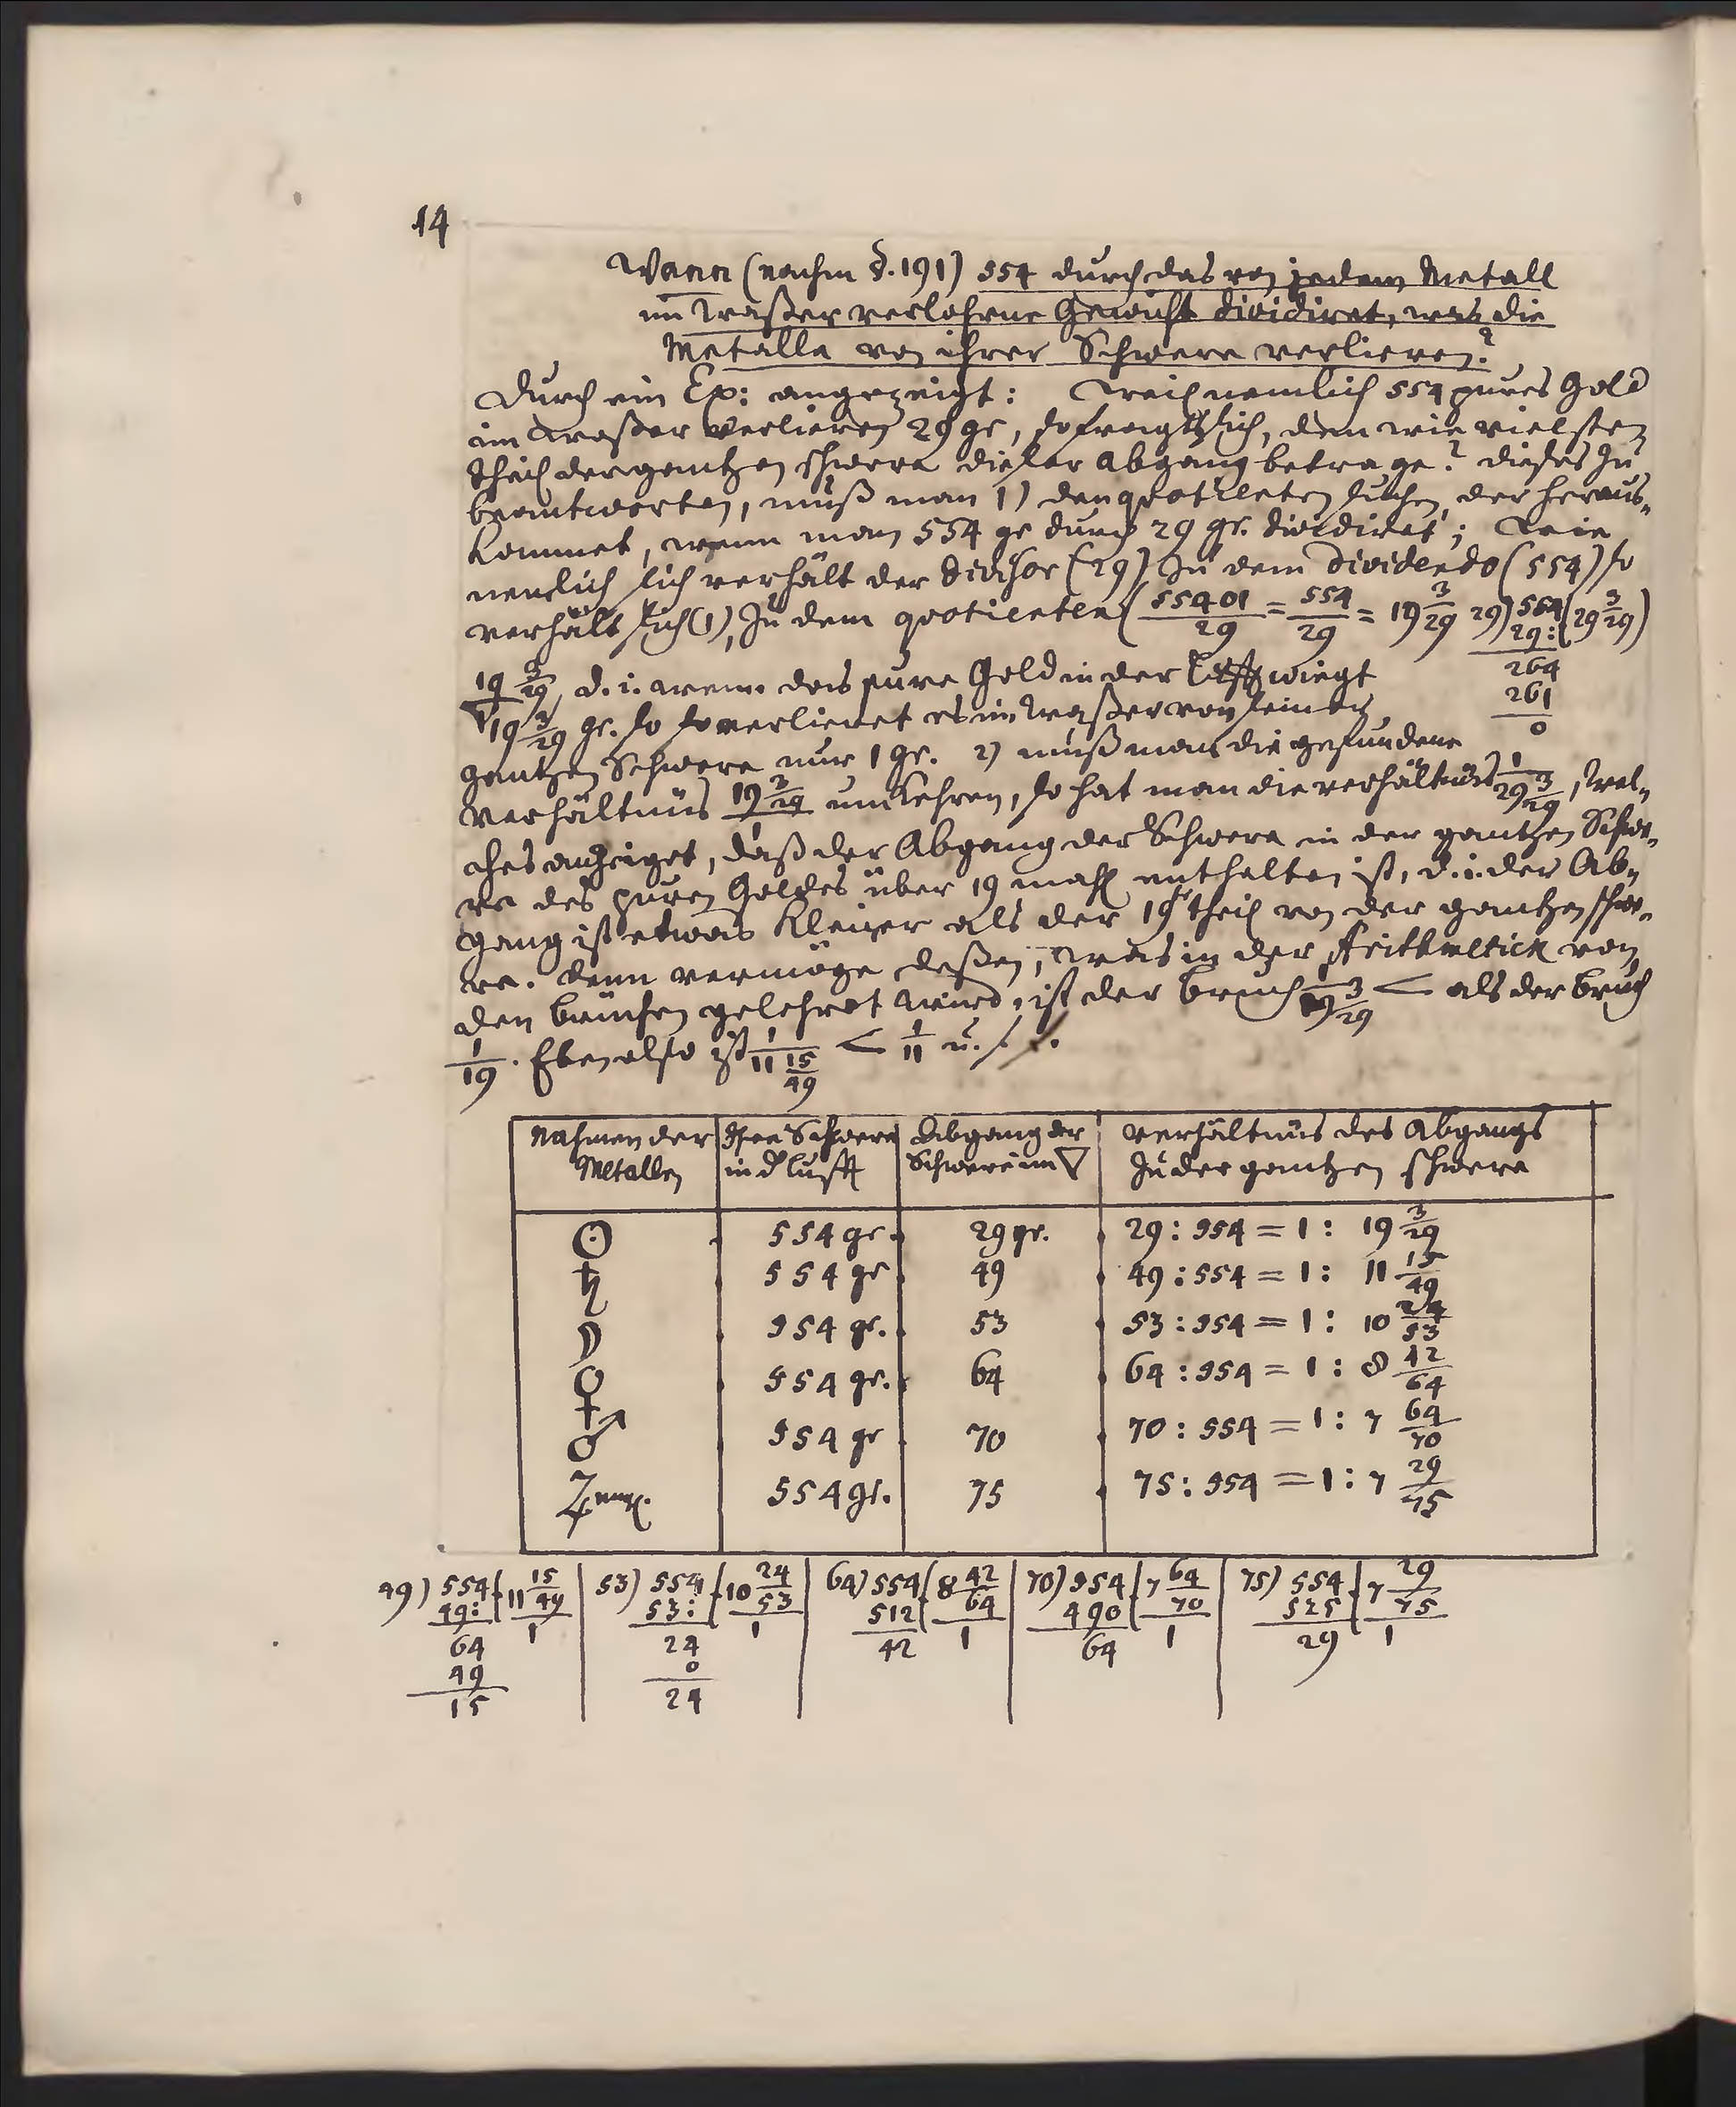 14
Wann (nachm §. 191) 554 durch das von jedem Metall
im Waßer verlohrne Gewicht dividiret, was die
Metalle von ihrer Schwere verlieren?
Durch ein Ex: angezeigt: Weil nemlich 554 pures Gold
im Waßer verlieren 29 gr, so fragt sich, den wie vielsten
Theil der gantzen schwere dieser Abgang betrage? dieses zu
beantworten, muß man 1) den quotienten suchen, der heraus„
kommet, wenn man 554 gr durch 29 gr. dividiret; Wie
nemlich sich verhält der divisor (29) zu dem dividendo (554) so
verhält sich (1), zu dem quotienten ( 554 01/29 = 554/29 = 19 3/29 29) 554 (29 3/29)
29:
264
261
0
19 3/29/1, d. i. wenn das pure Gold in der Lufft wiegt
19 3/29 gr. so verlieret es im Waßer von seiner
gantzen Schwere nur 1 gr. 2) muß man die gefundene
Verhältnüs 19 3/29/1 umkehren, so hat man die verhältnüs 1/29 3/29, wel„
ches anzeiget, daß der Abgang der Schwere in der gantzen Schwe„
re des puren Goldes über 19 mahl enthalten ist, d. i. der Ab„
gang ist etwas kleiner als der 19te theil von der gantzen schwe„
re. denn vermöge deßen, was in der Arithmetick von
den brüchen gelehret wird, ist der bruch 1/19 3/29 < als der bruch
1/19. Eben also ist 1/11 15/49 < 1/11 u. s. f.
Nahmen der Metallen | Ihre Schwere in d Lufft | Abgang der Schwere im ▽ | Verhältnüs des Abgangs zu der gantzen schwere
☉ | 554 gr. | 29 gr. | 29 : 554 = 1 : 19 3/29
♄ | 554 gr | 49 | 49 : 554 = 1 : 11 15/49
☽ | 554 gr. | 53 | 53 : 554 = 1 : 10 24/53
♀ | 554 gr. | 64 | 64 : 554 = 1 : 8 42/64
♂ | 554 gr | 70 | 70 : 554 = 1 : 7 64/70
♃ | 554 gr. | 75 | 75 : 554 = 1 : 7 29/75
49) 554 (11 15/49 | 53) 554 (10 24/53 | 64) 554 (8 42/64 | 70) 554 (7 64/70 | 75) 554 (7 29/75
49: 1 | 53: 1 | 512 1 | 490 1 | 525 1
64 | 24 | 42 | 64 | 29
49 | 0
15 | 24